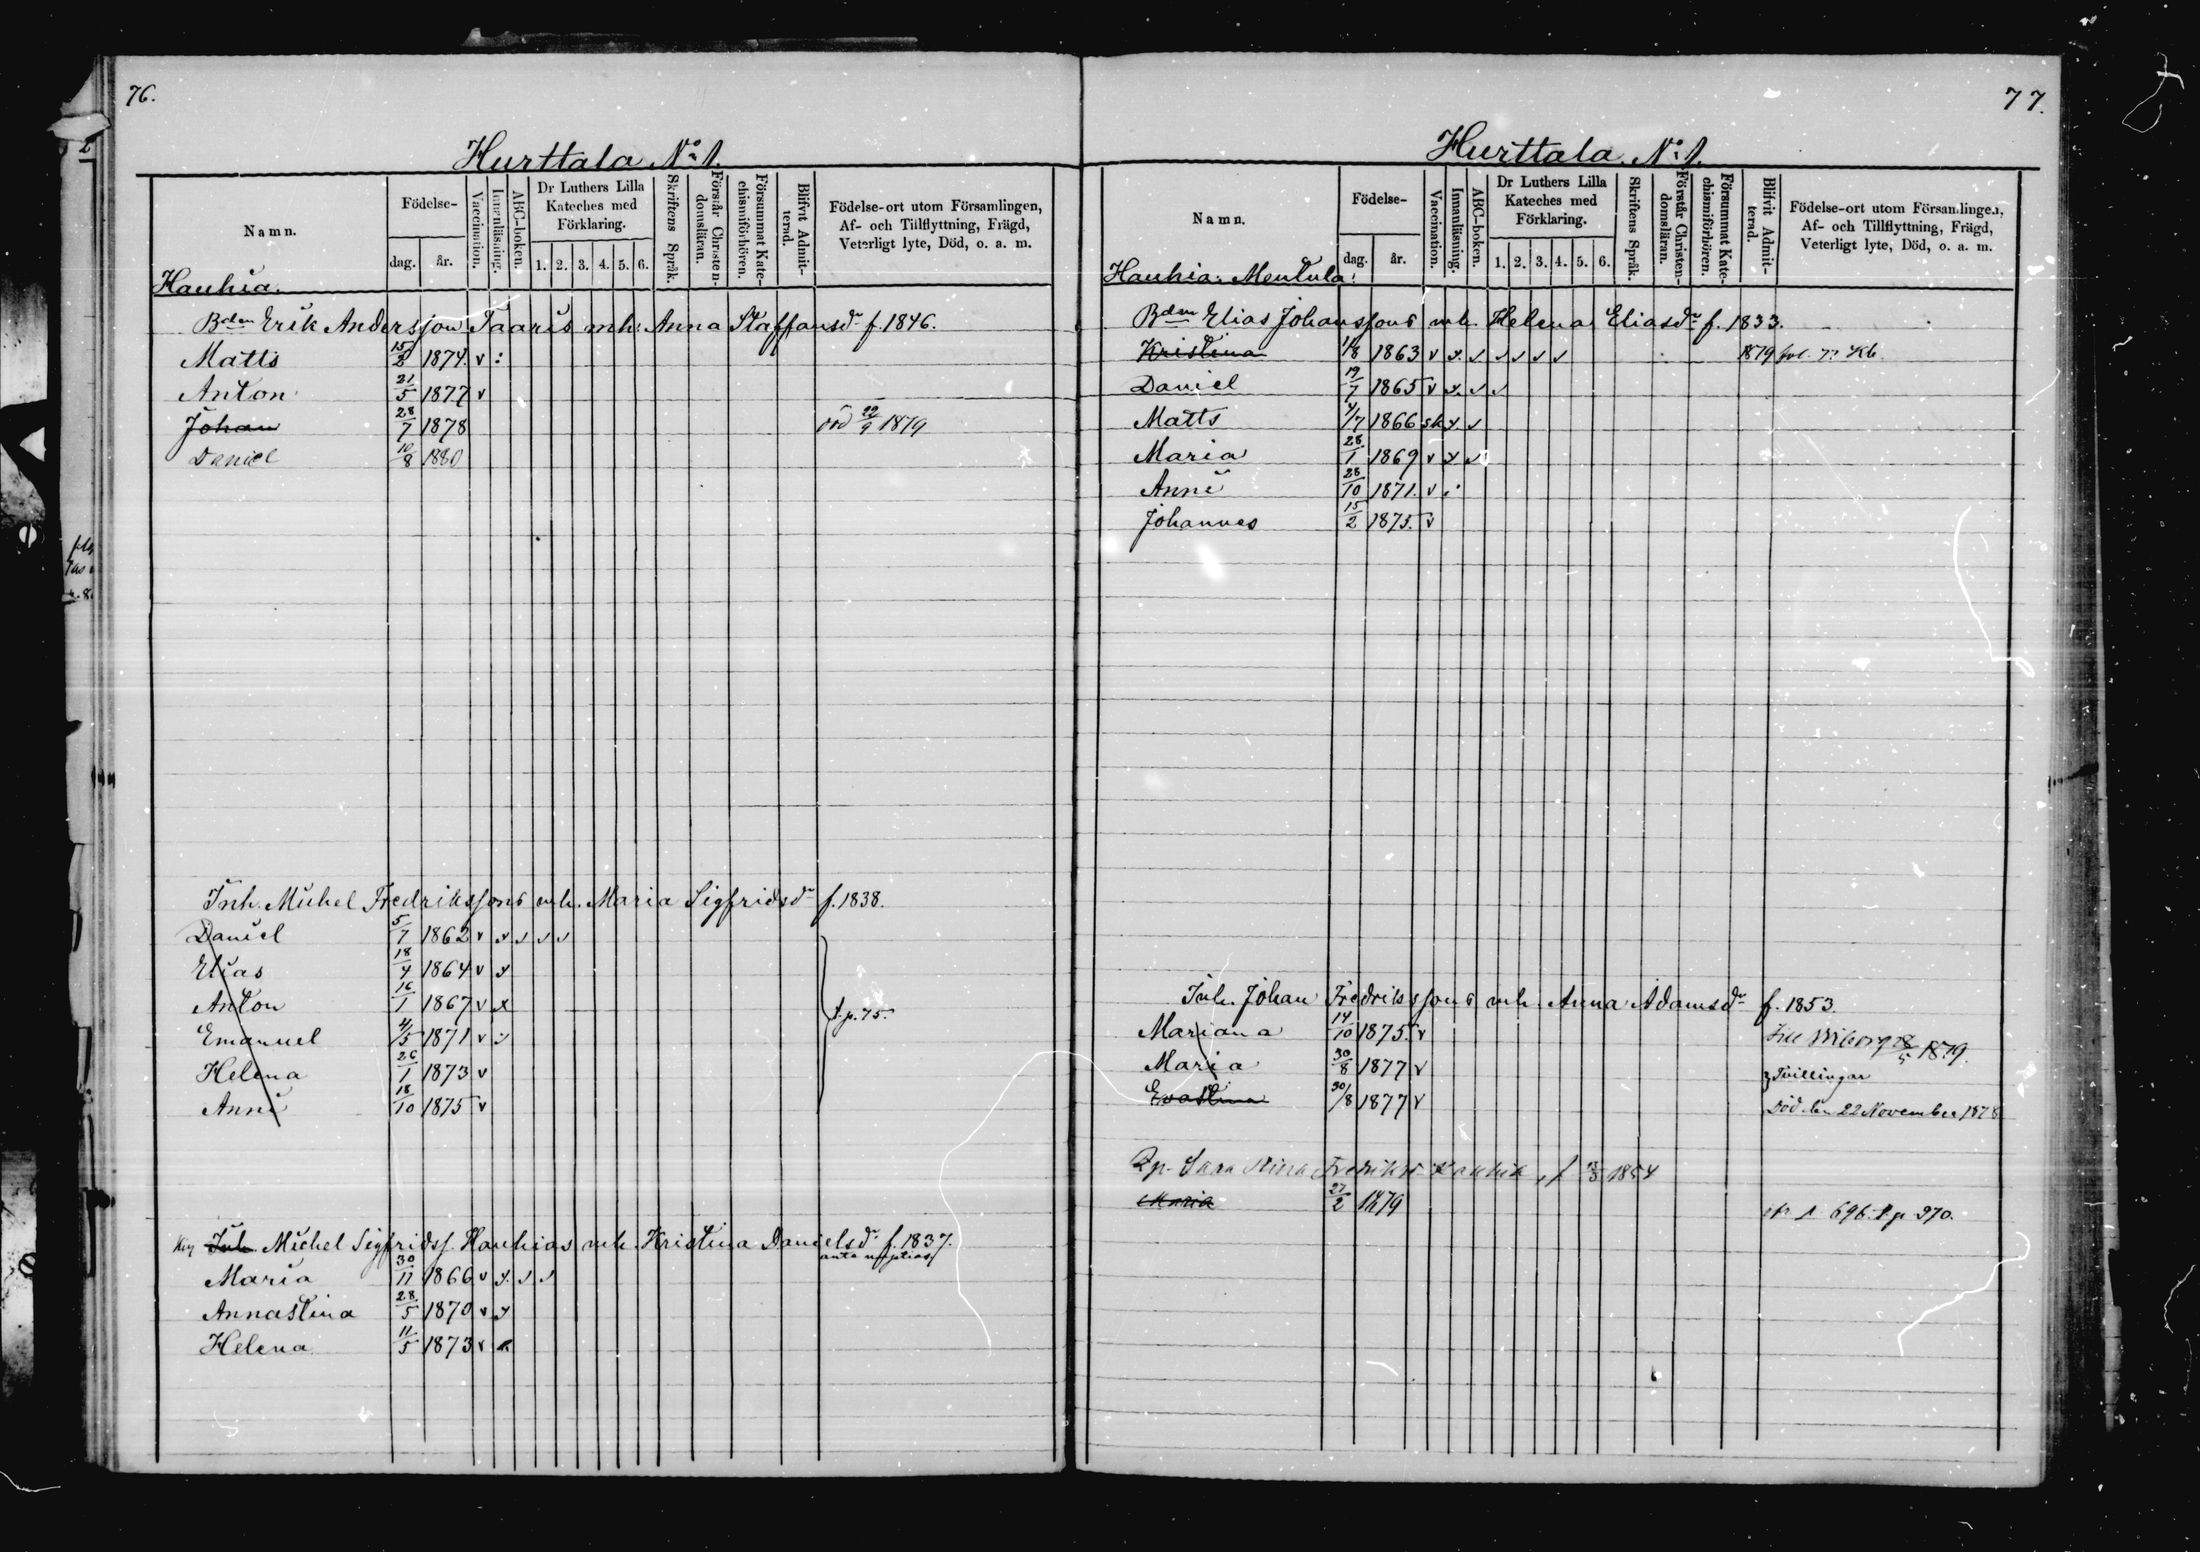 76.
Hurttala No 1.
Namn.
Födelse-
dag.
år.
Vaccination.
Innanläsning.
ABC-boken.
Dr Luthers Lilla
Kateches med
Förklaring.
1. 2. 3. 4. 5. 6.
Skriftens Språk.
Förstår Christen-
domsläran.
Försummat Kate-
chismiförhören.
Blifvit Admit-
terad.
Födelse-ort utom Församlingen,
Af- och Tillflyttning, Frägd,
Veterligt lyte, Död, o. a. m.
Hauhia.
Bden Erik Andersson Taaris mh: Anna Staffansdr f. 1846.
Matts 15/2 1874. v :
Anton 21/5 1877 v
Johan 28/7 1878 död 22/9 1879
Daniel 10/8 1880
Inh. Michel Fredrikssons mh. Maria Sigfridsdr f. 1838.
Daniel 5/7 1862 v x v v v
Elias 18/4 1864 v x
Anton 16/1 1867 v x
t.p. 75.
Emanuel 4/5 1871 v :
Helena 26/1 1873 v
Anni 18/10 1875 v
Inh. Michel Sigfridss. Hauhias mh. Kristina Danielsdr f. 1837.
ante nuptias
Maria 30/11 1866 v x. v v
Annastina 28/5 1870 v x
Helena 11/5 1873 v
77.
Hurttala. No 1.
Namn.
Födelse-
dag.
år.
Vaccination.
Innanläsning.
ABC-boken.
Dr Luthers Lilla
Kateches med
Förklaring.
1. 2. 3. 4. 5. 6.
Skriftens Språk.
Förstår Christen-
domsläran.
Försummat Kate-
chismiförhören.
Blifvit Admit-
terad.
Födelse-ort utom Församlingen,
Af- och Tillflyttning, Frägd,
Veterligt lyte, Död, o. a. m.
Hauhia. Mentula.
Bden Elias Johanssons mh. Helena Eliasdr f. 1833.
Kristina 1863 v x. v v v v v 1879 Kb.
Daniel 19/7 1865 v x. v v
Matts 4/7 1866 sk x. v
Maria 28/1 1869 v x v
Anni 28/10 1871. v :
Johannes 15/2 1875. v
Inh. Johan Fredrikssons mh. Anna Adamsdr f. 1853.
Mariana 14/10 1875. v Till Wiborg 1879.
Maria 30/8 1877 v Tvillingar
Evastina 30/8 1877 v Död den 22 November 1878
Sara Stina Fredriksdr Hauhia, f. 1854
Maria 27/2 1879 696. t.p 370.